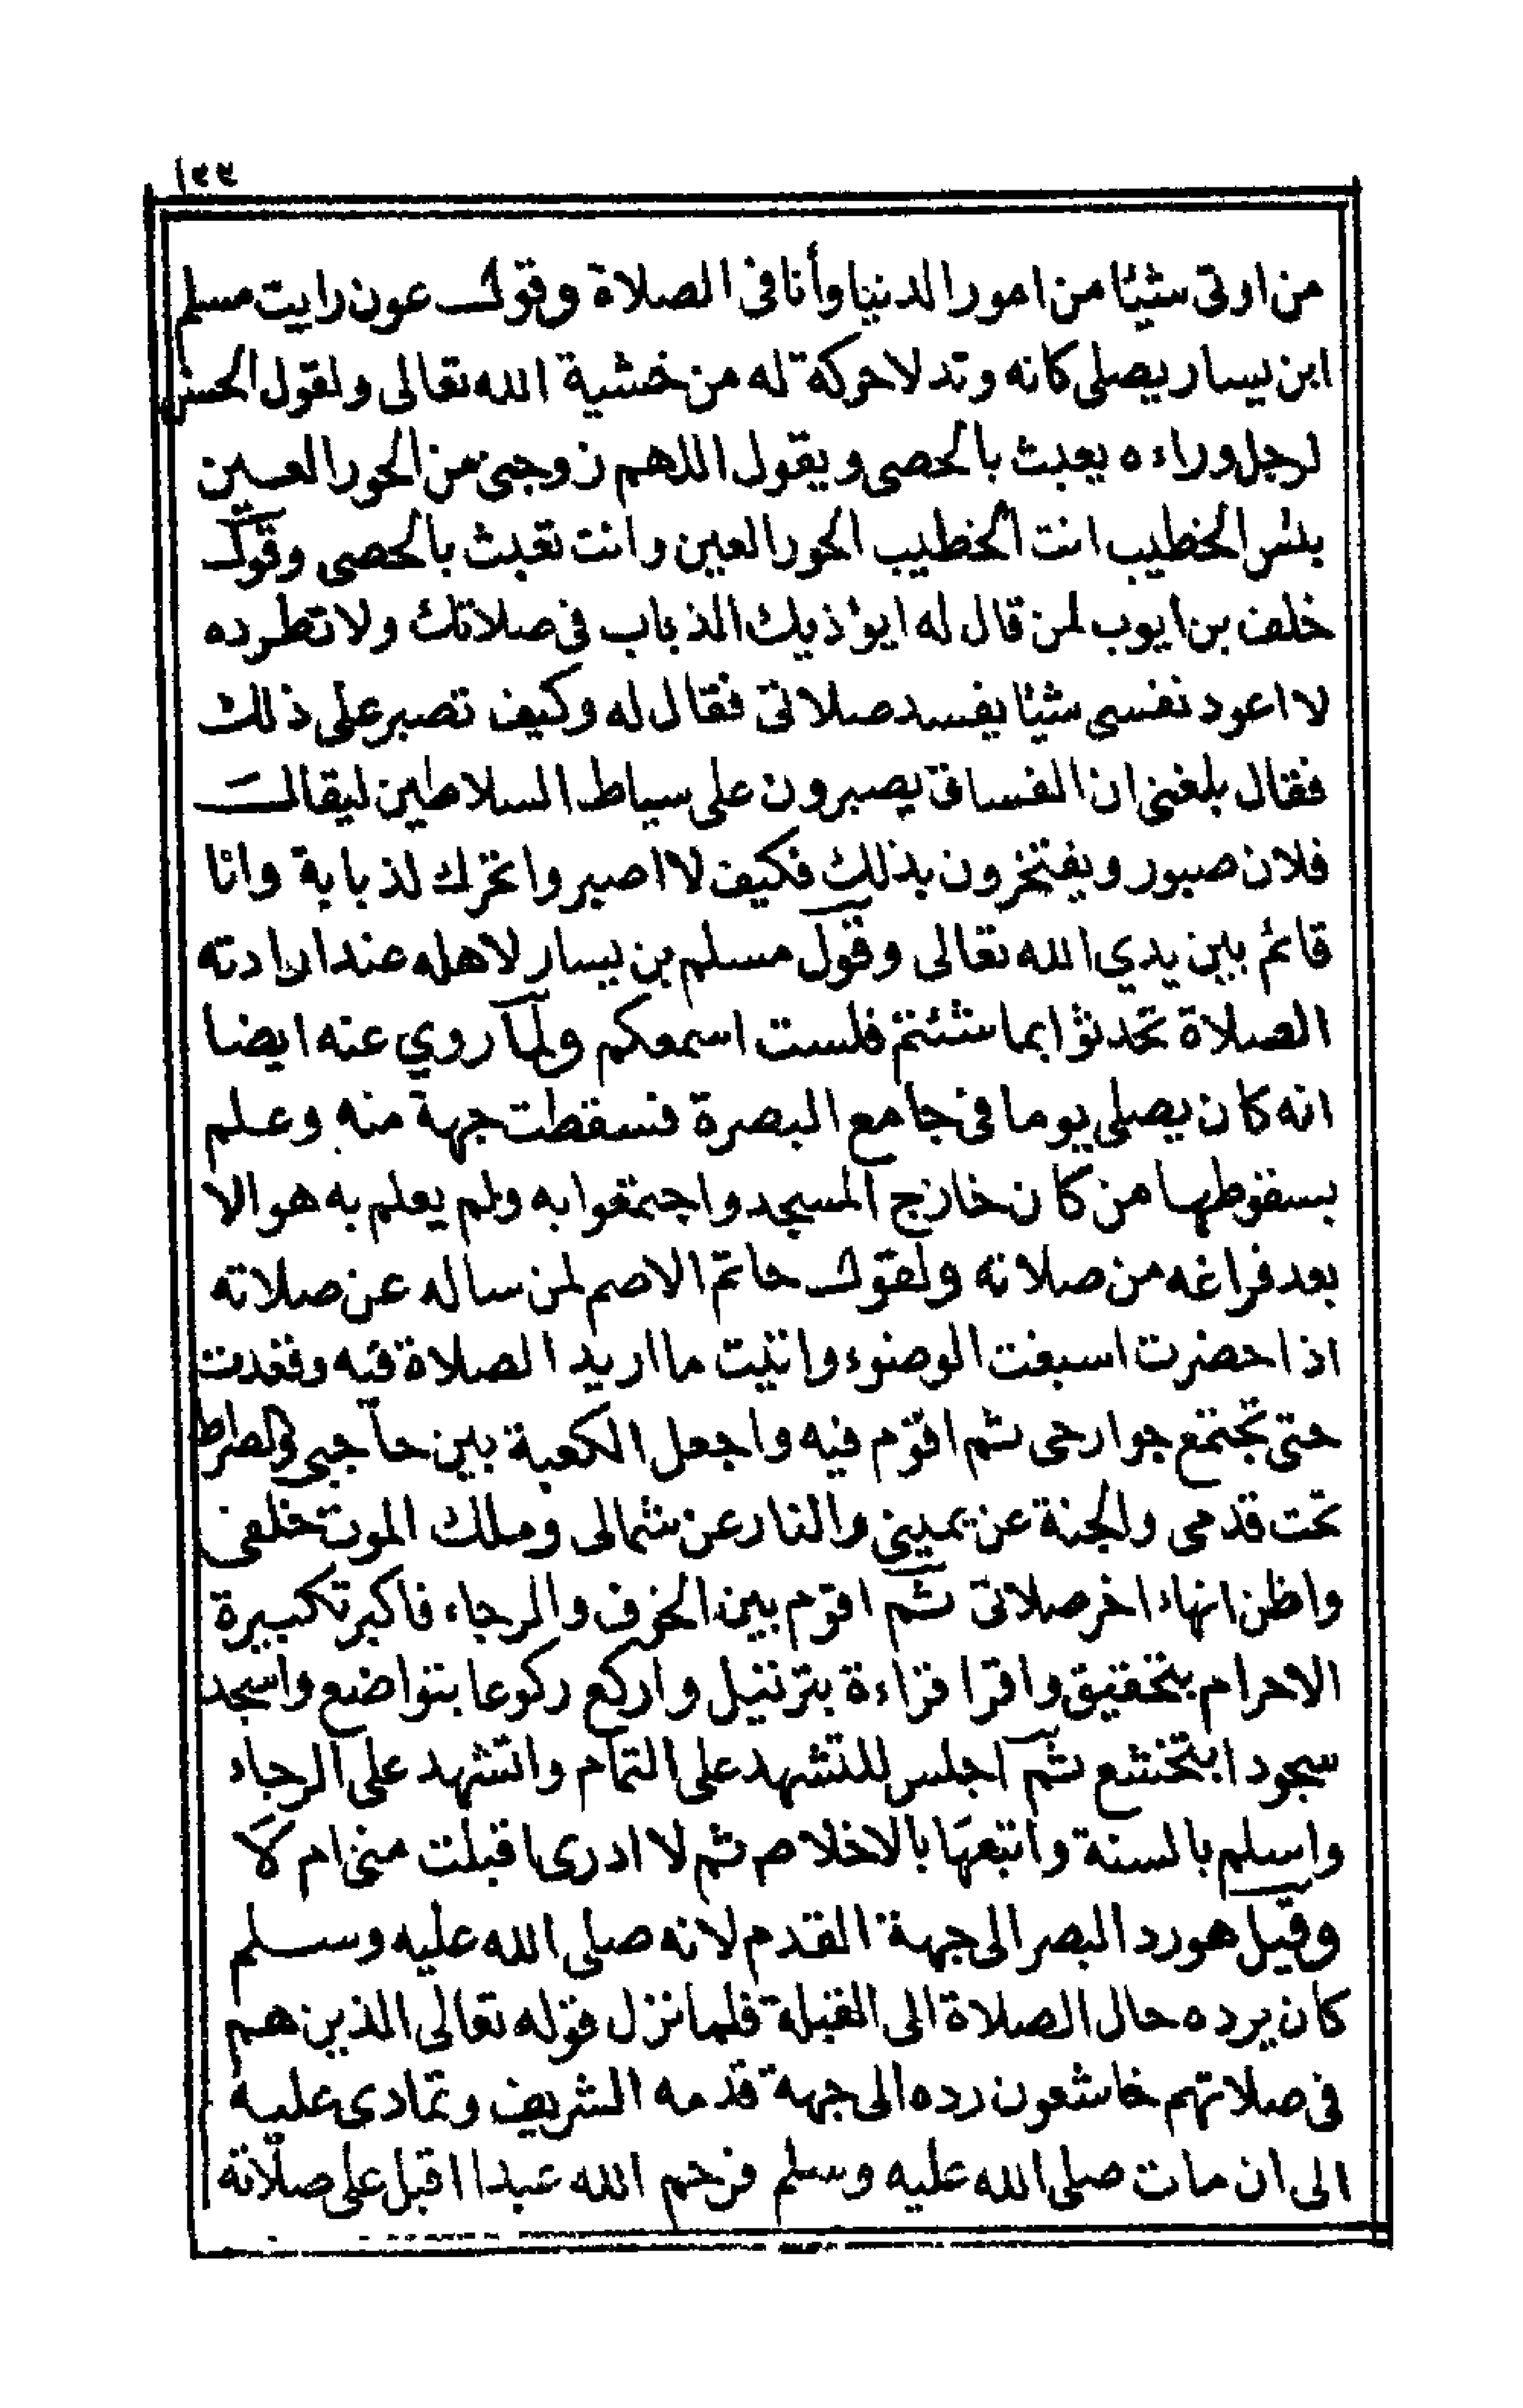 ١٩٩
من اوتى شيئا من امور الدنيا وأنا فى الصلاة وقول عون رايت مسلم
ابن يسار يصلى كانه وتد لا حركة له من خشية الله تعالى ولقول الحسن
لرجل وراءه يعبث بالحصى ويقول اللهم زوجنى من الحور العين
بئس الخطيب انت الخطيب الحور العين وانت تعبث بالحصى وقول
خلف بن ايوب لمن قال له ايؤذيك الذباب فى صلاتك ولا تطرده
لا اعود نفسى شيئا يفسد صلاتى فقال له وكيف تصبر على ذلك
فقال بلغنى ان الفساق يصبرون على سياط السلاطين ليقال
فلان صبور ويفتخرون بذلك فكيف لا اصبر واتحرك لذبابة وانا
قائم بين يدي الله تعالى وقول مسلم بن يسار لاهله عند ارادته
الصلاة تحدثوا بما شئتم فلست اسمعكم ولما روي عنه ايضا
انه كان يصلى يوما فى جامع البصرة فسقطت جهة منه وعلم
بسقوطها من كان خارج المسجد واجتمعوا به ولم يعلم به هو الا
بعد فراغه من صلاته ولقول حاتم الاصم لمن ساله عن صلاته
اذا حضرت اسبغت الوضوء واتيت ما اريد الصلاة فيه وقعدت
حتى تجتمع جوارحى ثم اقوم فيه واجعل الكعبة بين حاجبى والصراط
تحت قدمى والجنة عن يميني والنار عن شمالى وملك الموت خلفى
واظن انهاء اخر صلاتى ثم اقوم بين الخوف والرجاء فاكبر تكبيرة
الاحرام بتحقيق واقرا قراءة بترتيل واركع ركوعا بتواضع واسجد
سجودا بتخشع ثم اجلس للتشهد على التمام واتشهد على الرجاء
واسلم بالسنة واتبعها بالاخلاص ثم لا ادرى اقبلت منى ام لا
وقيل هو رد البصر الى جهة القدم لانه صلى الله عليه وسلم
كان يرده حال الصلاة الى القبلة فلما نزل قوله تعالى الذين هم
فى صلاتهم خاشعون رده الى جهة قدمه الشريف وتمادى عليه
الى ان مات صلى الله عليه وسلم فرحم الله عبدا اقبل على صلاته